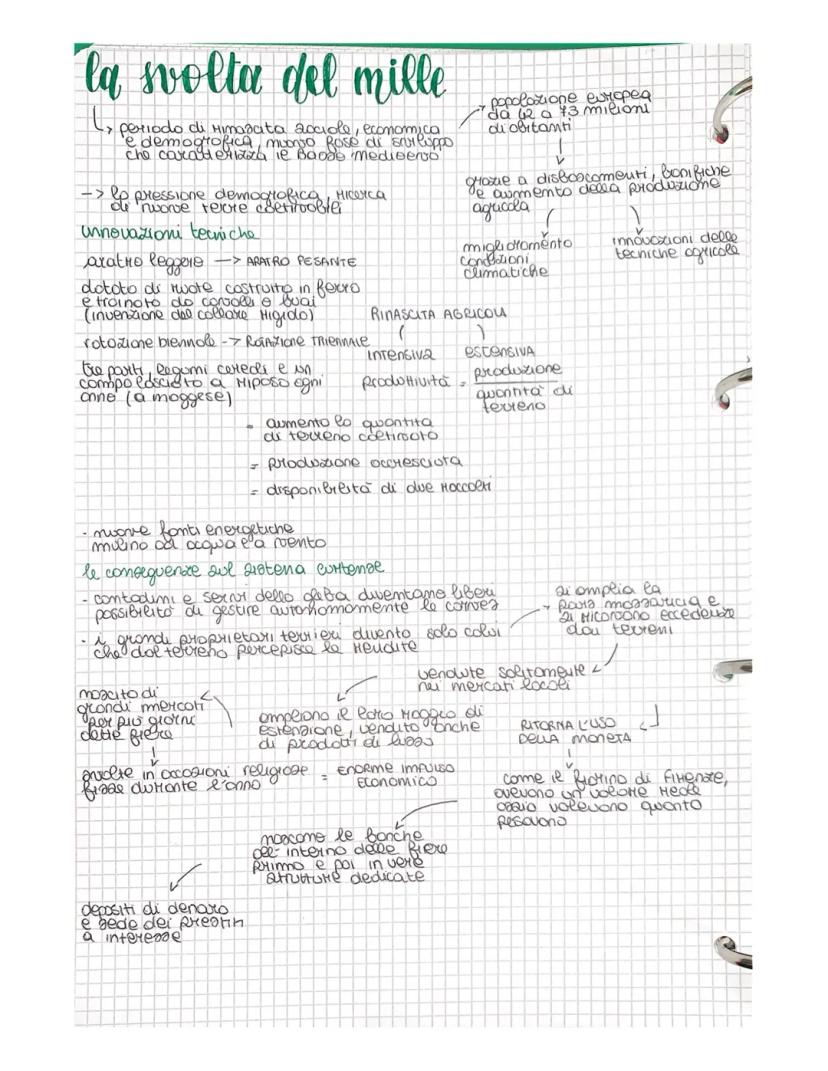 la svolta del mille
↳ periodo di rinascita sociale, economica
e demografica, nuova fase di sviluppo
che caratterizza le Basso medioevo
→ popolazione europea
da 42 a 73 milioni
di abitanti
-> la pressione demografica, ricerca
di nuove terre coltivabili
grazie a disboscamenti, bonifiche
e aumento della produzione
agricola
miglioramento
condizioni
climatiche
innovazioni delle
tecniche agricole
innovazioni tecniche
aratro leggero -> ARATRO PESANTE
dotato di ruote costruito in ferro
e trainato da cavalli e buoi
(invenzione del collare rigido)
rotazione biennale -> ROTAZIONE TRIENNALE
tre parti, legumi cereali e un
campo lasciato a riposo ogni
anno (a maggese)
RINASCITA AGRICOLA
intensiva estensiva
produttività = produzione
quantità di
terreno
= aumento la quantità
di terreno coltivato
= produzione accresciuta
= disponibilità di due raccolti
- nuove fonti energetiche
mulino ad acqua e a vento
le conseguenze sul sistema curtense
- contadini e servi della gleba diventano liberi
possibilità di gestire autonomamente le corvèes
- i grandi proprietari terrieri divento solo colui
che dal terreno percepisce la rendite
si amplia la
pars massaricia e
si ricavano eccedenze
dai terreni
vendute solitamente
nei mercati locali
nascita di
grandi mercati
per più giorni
dette fiera
ampliano il loro raggio di
estensione, vendito anche
di prodotti di lusso
RITORNA L'USO
DELLA MONETA
svolte in occasioni religiose
fisse durante l'anno
= ENORME IMPULSO
ECONOMICO
come il fiorino di firenze,
avevano un valore reale
ossia valevano quanto
pesavano
nascono le banche
all'interno delle fiere
prima e poi in vere
strutture dedicate
depositi di denaro
e sede dei prestiti
a interesse